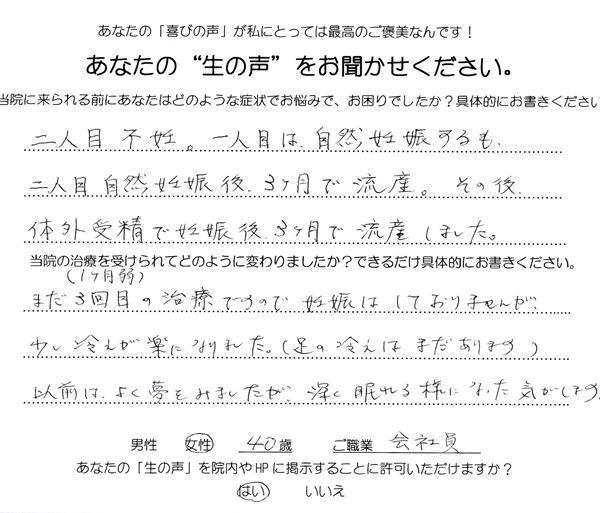 あなたの「喜びの声」が私にとっては最高のご褒美なんです！
あなたの“生の声”をお聞かせください。
当院に来られる前にあなたはどのような症状でお悩みで、お困りでしたか？具体的にお書きください
二人目不妊。一人目は自然妊娠するも、
二人目自然妊娠後、3ヶ月で流産。その後、
体外受精で妊娠後3ヶ月で流産しました。
当院の治療を受けられてどのように変わりましたか？できるだけ具体的にお書きください。
(1ヶ月弱)
まだ3回目の治療ですので妊娠はしておりませんが、
少し冷えが楽になりました。(足の冷えはまだあります)
以前は、よく夢をみましたが、深く眠れる様になった気がします。
男性 女性 40歳 ご職業 会社員
あなたの「生の声」を院内やHPに掲示することに許可いただけますか？
はい いいえ